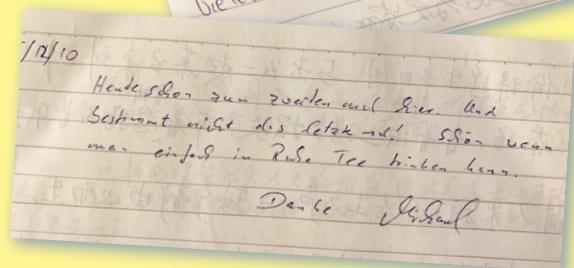 /12/10
Heute schon zum zweiten mal hier. Und
bestimmt nicht das letzte mal! Schön wenn
man einfach in Ruhe Tee trinken kann.
Danke Michael